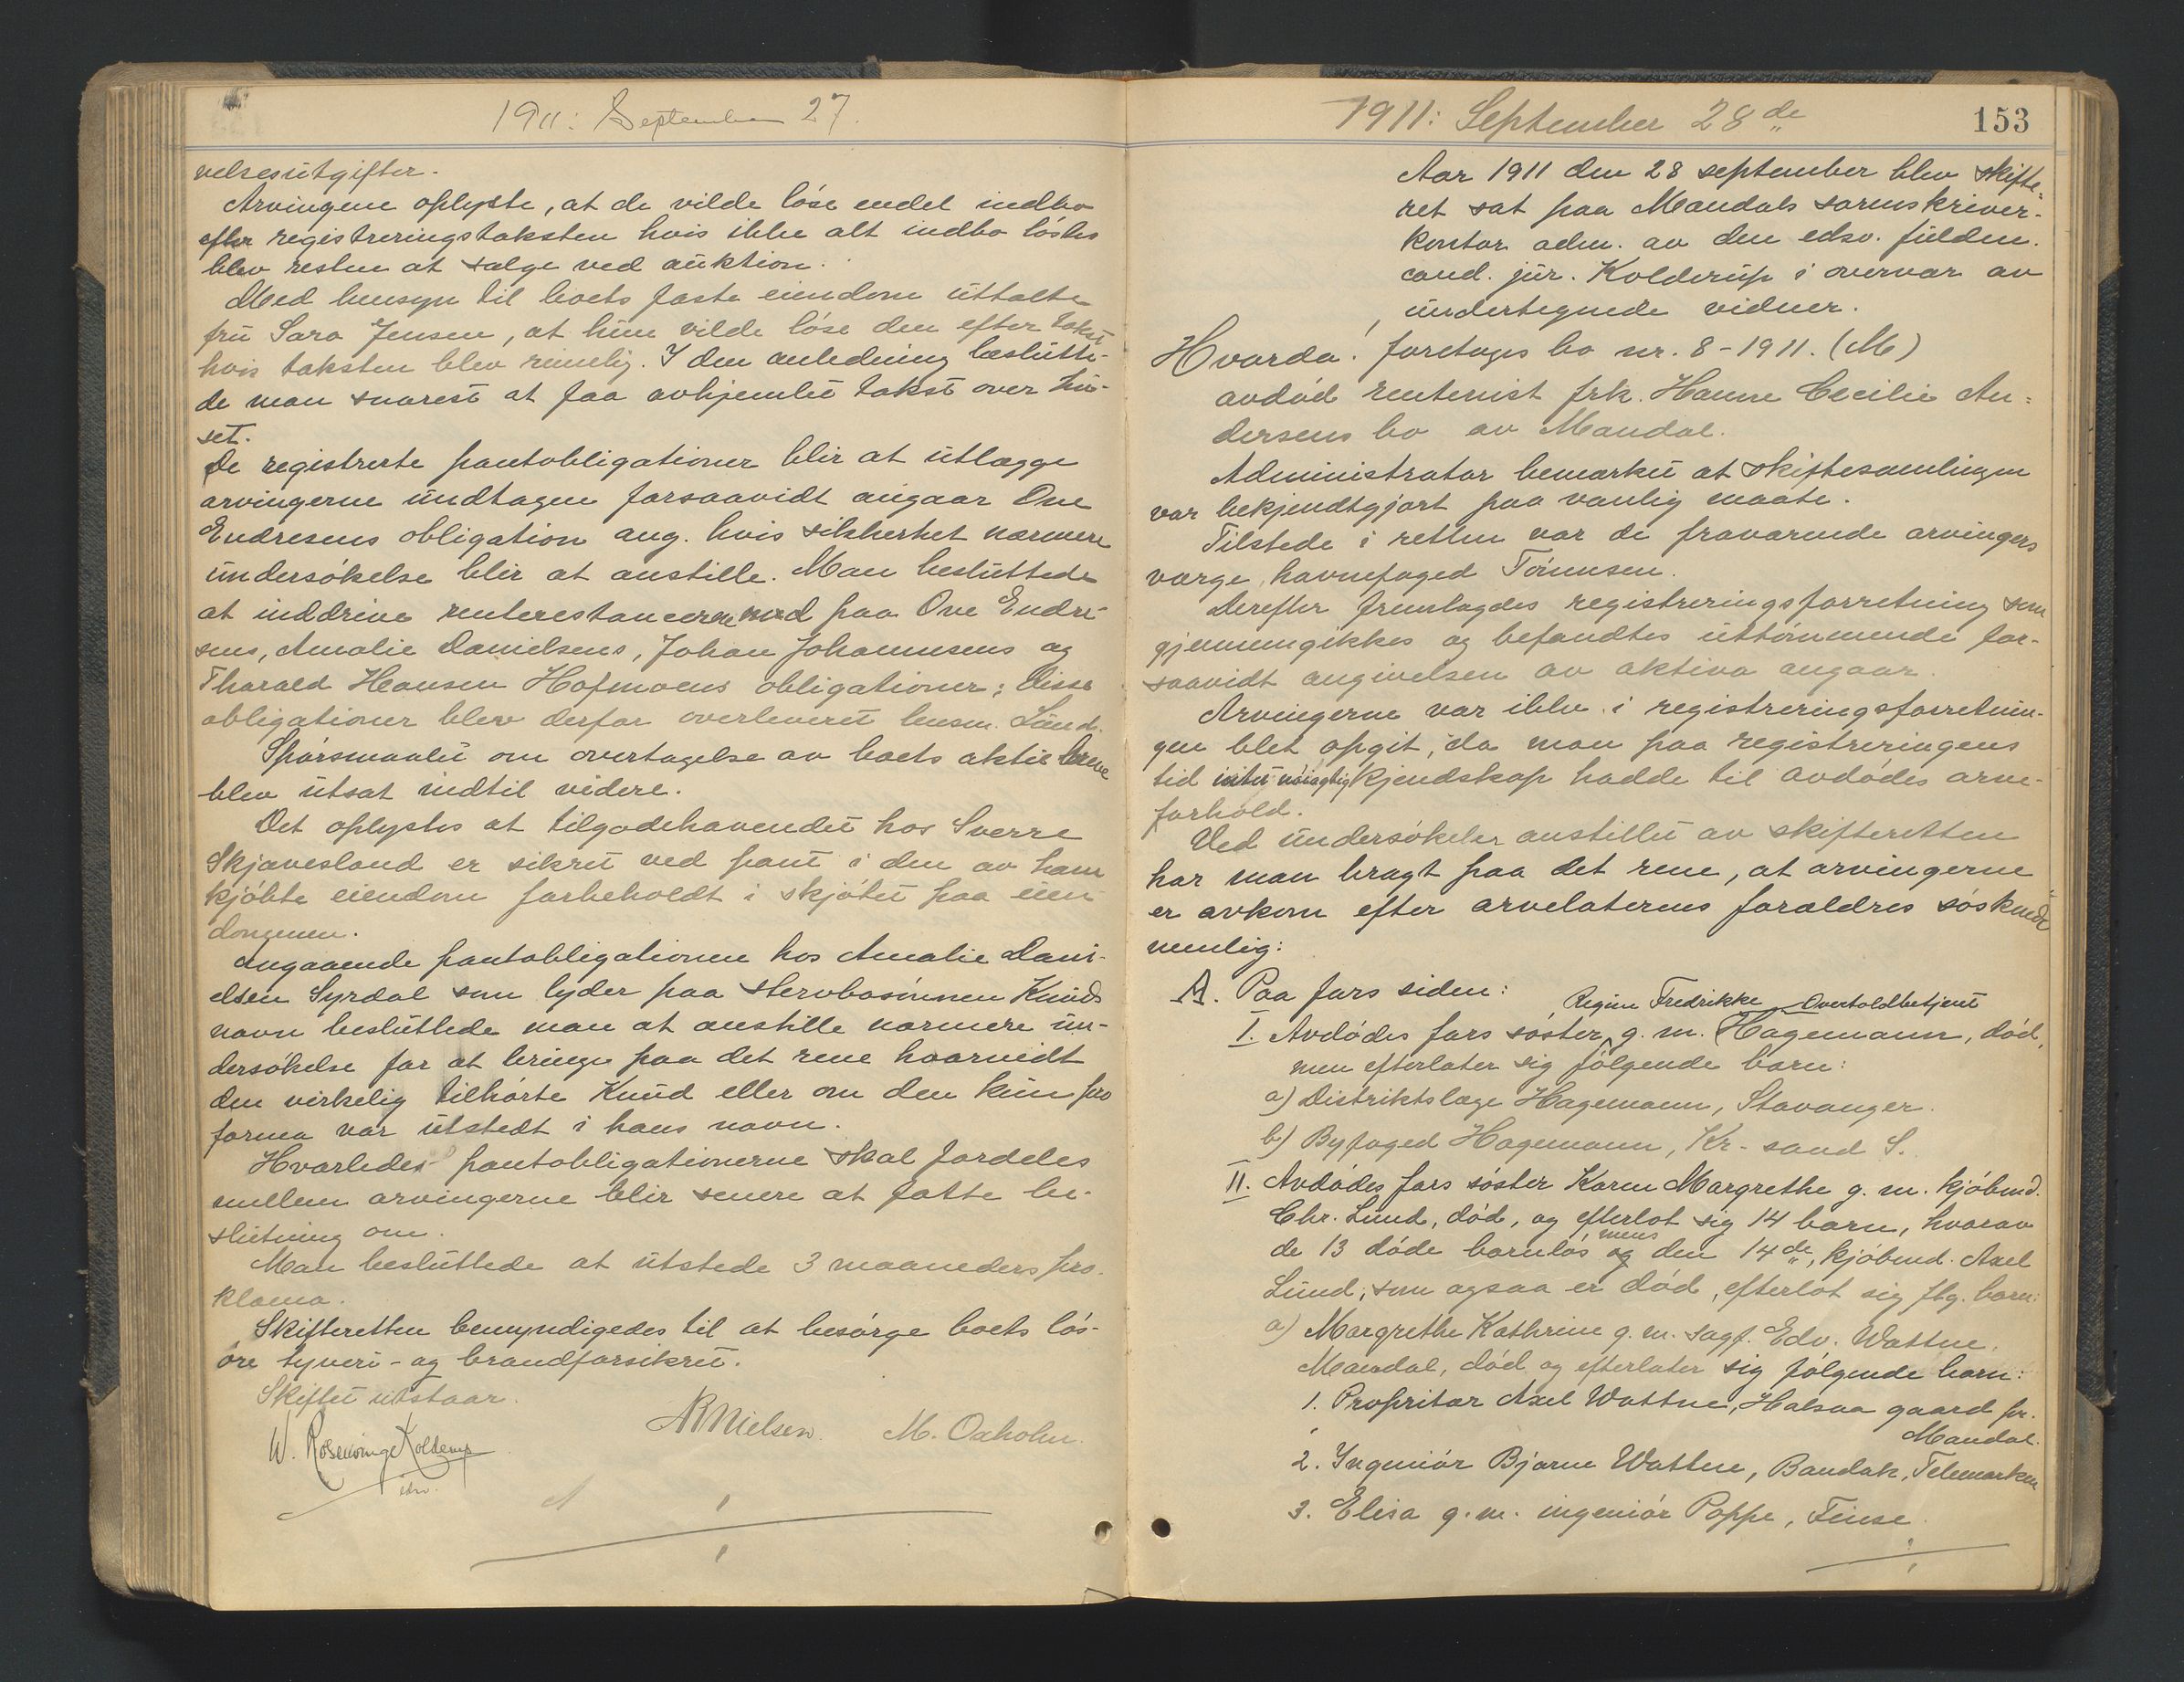 1911: September 27.
velsesutgifter.
Arvingene oplyste, at de vilde løse endel indbo
efter registreringstaksten hvis ikke alt indbo løstes
blev resten at sælge ved auktion.
Med hensyn til boets faste eiendom uttalte
fru Sara Jensen, at hun vilde løse den efter takst
hvis taksten blev rimelig. I den anledning beslutte-
de man snarest at faa avhjemlet takst over hu-
set.
De registrerte pantobligationer blir at utlægge
arvingerne undtagen forsaavidt angaar Ove
Endresens obligation ang. hvis sikkerhet nærmere
undersøkelse blir at anstille. Man besluttede
at inddrive renterestancerne med paa Ove Endre-
sens, Amalie Danielsens, Johan Johannesens og
Tharald Hansen Hofmoens obligationer; disse
obligationer blev derfor overleveret lensm. Lund.
Spørsmaalet om overtagelse av boets aktiebreve
blev utsat indtil videre.
Det oplystes at tilgodehavendet hos Sverre
Skjævesland er sikret ved pant i den av ham
kjøpte eiendom forbeholdt i skjøtet paa eien-
dommen.
Angaaende pantobligationen hos Amalie Dani-
elsen Syrdal som lyder paa stervbosønnen Knuds
navn besluttede man at anstille nærmere un-
dersøkelse for at bringe paa det rene hvorvidt
den virkelig tilhørte Knud eller om den kun pro
forma var utstedt i hans navn.
Hvorledes pantobligationerne skal fordeles
mellem arvingerne blir senere at fatte be-
slutning om.
Man besluttede at utstede 3 maaneders pro-
klama.
Skifteretten bemyndigedes til at besørge boets løs-
øre tyveri- og brandforsikret.
Skiftet utstaar.
W. Rosenvinge Kolderup
edsv.
NB Nielsen. M. Oxholm.
1911: September 28de
153
Aar 1911 den 28 september blev skifte-
ret sat paa Mandals sorenskriver-
kontor adm. av den edsv. fuldm.
cand. jur. Kolderup i overvær av
undertegnede vidner.
Hvorda: foretoges bo nr. 8-1911. (M)
avdød rentenist frk. Hanne Cecilie An-
dersens bo av Mandal.
Administrator bemerket at skiftesamlingen
var bekjendtgjort paa vanlig maate.
Tilstede i retten var de fraværende arvingers
værge, havnefoged Tønnesen.
Derefter fremlagdes registreringsforretning som
gjennemgikkes og befandtes uttømmende for-
saavidt angivelsen av aktiva angaar.
Arvingerne var ikke i registreringsforretnin-
gen blet opgit, da man paa registreringens
tid intet nøiagtig kjendskap hadde til avdødes arve-
forhold.
Ved undersøkelser anstillet av skifteretten
har man bragt paa det rene, at arvingerne
er avkom efter arvelaterens forældres søskende
nemlig:
A. Paa fars siden:
Regine Fredrikke Overtoldbetjent
I. Avdødes fars søster, g. m. Hagemann, død,
men efterlater sig følgende barn:
a) Distriktslæge Hagemann, Stavanger.
b) Byfoged Hagemann, Kr-sand S.
II. Avdødes fars søster Karen Margrethe g. m. kjøbmd.
Chr. Lund, død, og efterlot sig 14 barn, hvorav
de 13 døde barnløs og mens den 14de, kjøbmd. Axel
Lund, som ogsaa er død, efterlot sig flg. barn:
a) Margrethe Kathrine g. m. sagf. Edv. Wattne,
Mandal, død og efterlater sig følgende barn:
1. Propritær Axel Wattne, Halsaa gaard pr.
Mandal.
2. Ingeniør Bjarne Wattne, Bandak, Telemarken
3. Elisa g. m. ingeniør Poppe, Finse.